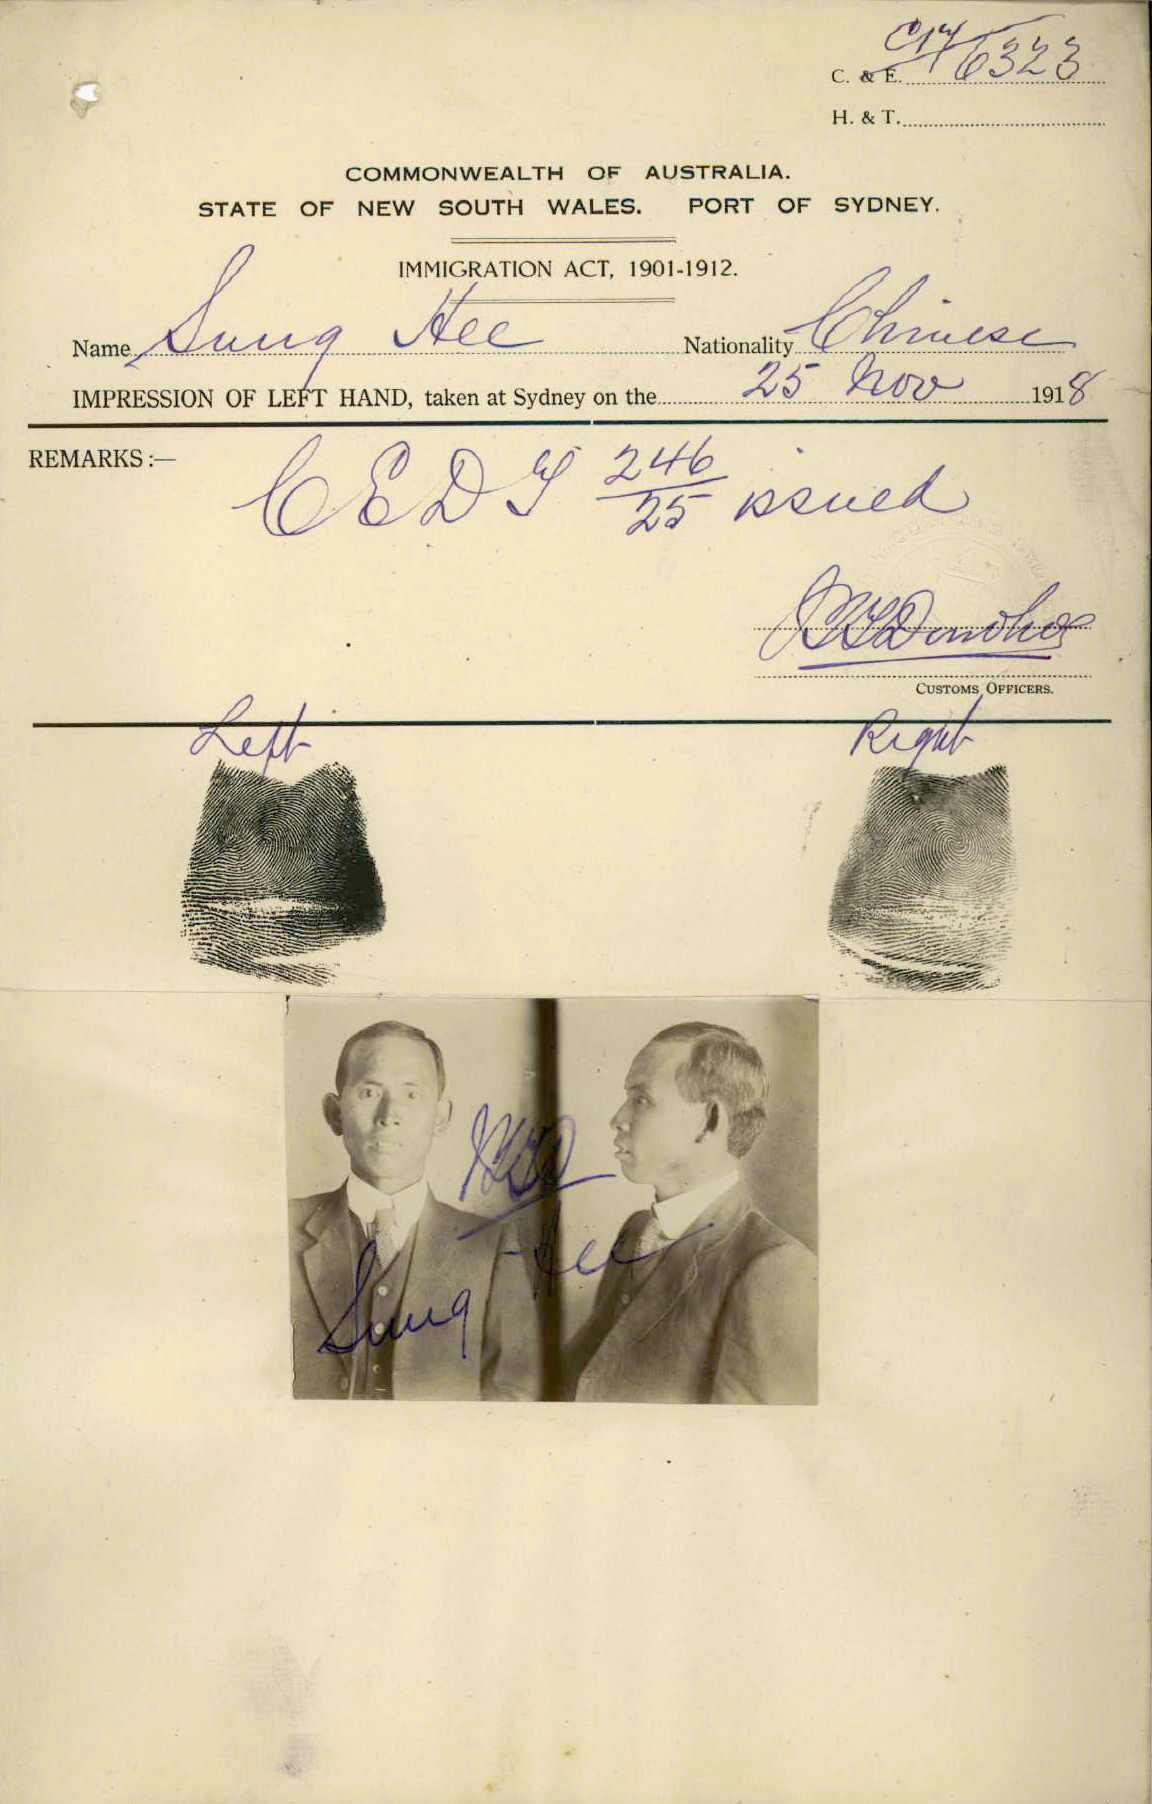 C17/6323
C. & E.
H. & T.
COMMONWEALTH OF AUSTRALIA.
STATE OF NEW SOUTH WALES. PORT OF SYDNEY.
IMMIGRATION ACT, 1901-1912.
Name Sung Hee Nationality Chinese
IMPRESSION OF LEFT HAND, taken at Sydney on the 25 Nov 1918
REMARKS :— C E D T 246/25 issued
Donohoe
CUSTOMS OFFICERS.
Left Right
Sung Hee